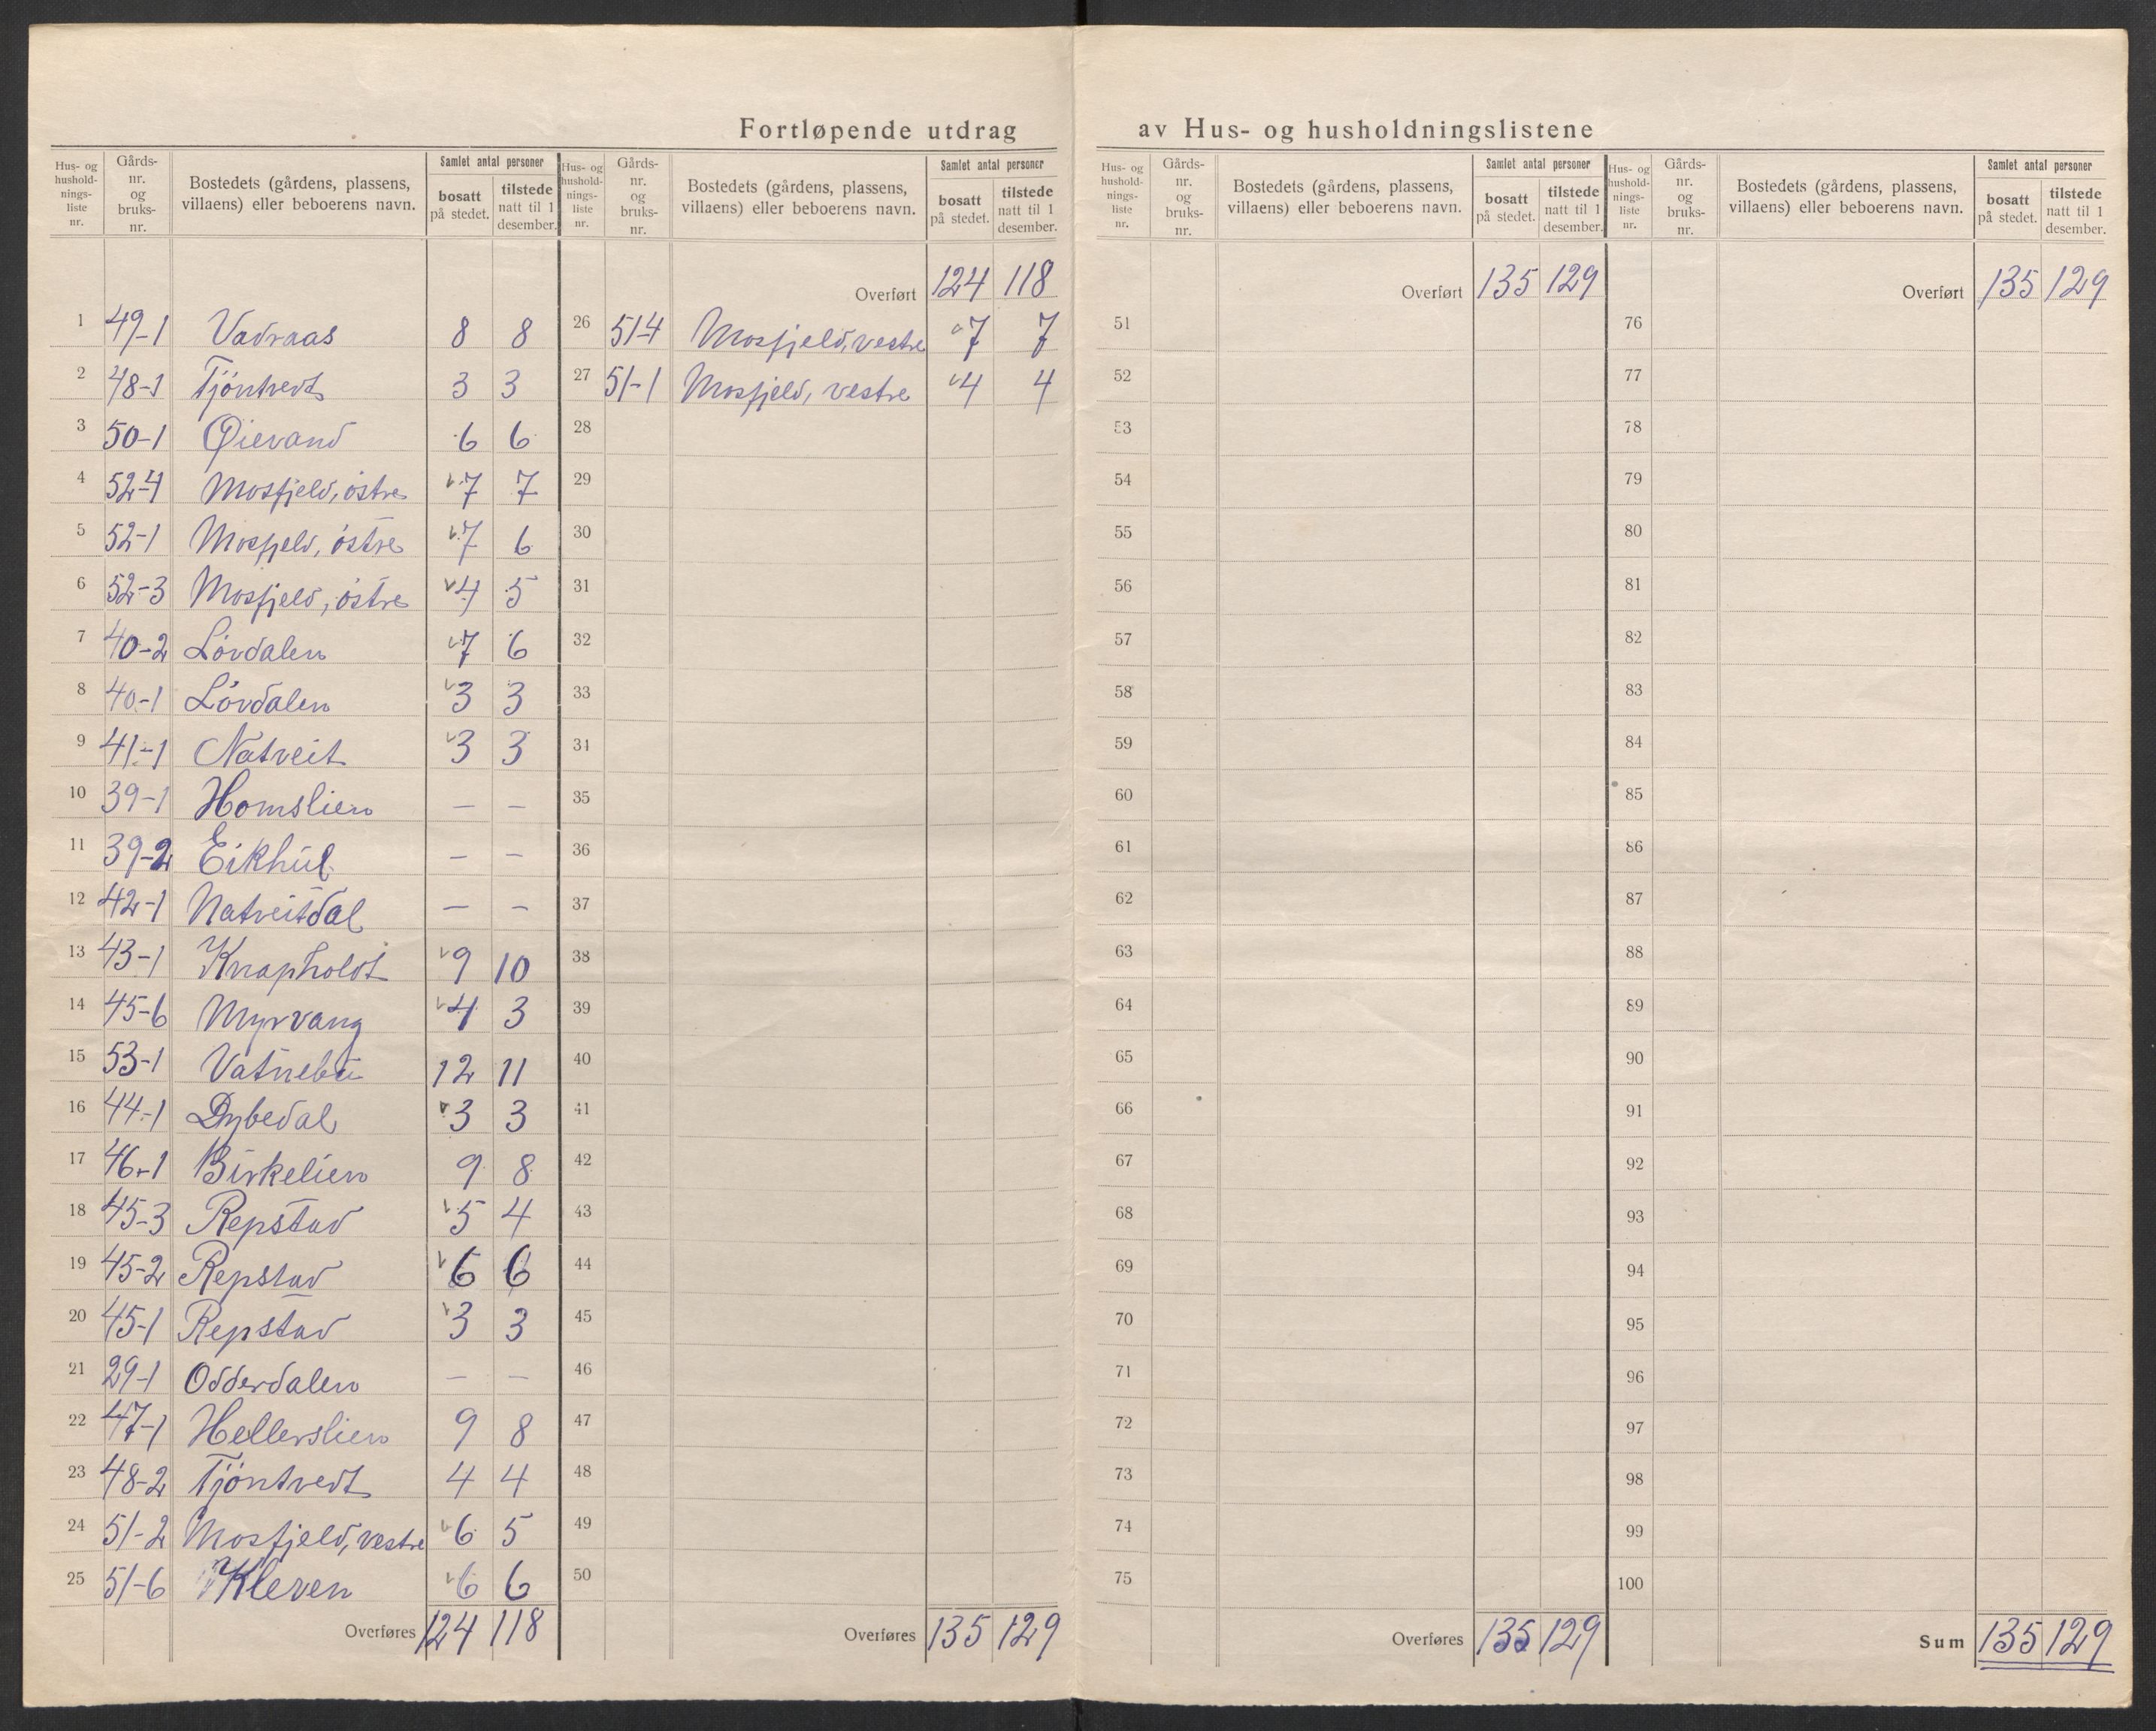 Fortløpende utdrag av Hus- og husholdningslistene
Hus- og husholdnings-liste nr. Gårds-nr. og bruks-nr. Bostedets (gårdens, plassens, villaens) eller beboerens navn. Samlet antal personer bosatt på stedet. tilstede natt til 1 desember.
1 49-1 Vadraas 8 8
2 48-1 Tjöntvedt 3 3
3 50-1 Øievand 6 6
4 52-4 Mosfjeld, östre 7 7
5 52-1 Mosfjeld, östre 7 6
6 52-3 Mosfjeld, östre 4 5
7 40-2 Lövdalen 7 6
8 40-1 Lövdalen 3 3
9 41-1 Natveit 3 3
10 39-1 Homslien — —
11 39-2 Eikhul — —
12 42-1 Natveitdal — —
13 43-1 Knapholdt 9 10
14 45-6 Myrvang 4 3
15 53-1 Vatnebu 12 11
16 44-1 Dybedal 3 3
17 46-1 Birkelien 9 8
18 45-3 Repstad 5 4
19 45-2 Repstad 6 6
20 45-1 Repstad 3 3
21 29-1 Odderdalen — —
22 47-1 Hellerslien 9 8
23 48-2 Tjöntvedt 4 4
24 51-2 Mosfjeld, vestre 6 5
25 51-6 Kleven 6 6
Overføres 124 118
Hus- og husholdnings-liste nr. Gårds-nr. og bruks-nr. Bostedets (gårdens, plassens, villaens) eller beboerens navn. Samlet antal personer bosatt på stedet. tilstede natt til 1 desember.
Overført 124 118
26 51-4 Mosfjeld, vestre 7 7
27 51-1 Mosfjeld, vestre 4 4
28
29
30
31
32
33
34
35
36
37
38
39
40
41
42
43
44
45
46
47
48
49
50
Overføres 135 129
Hus- og husholdnings-liste nr. Gårds-nr. og bruks-nr. Bostedets (gårdens, plassens, villaens) eller beboerens navn. Samlet antal personer bosatt på stedet. tilstede natt til 1 desember.
Overført 135 129
51
52
53
54
55
56
57
58
59
60
61
62
63
64
65
66
67
68
69
70
71
72
73
74
75
Overføres 135 129
Hus- og husholdnings-liste nr. Gårds-nr. og bruks-nr. Bostedets (gårdens, plassens, villaens) eller beboerens navn. Samlet antal personer bosatt på stedet. tilstede natt til 1 desember.
Overført 135 129
76
77
78
79
80
81
82
83
84
85
86
87
88
89
90
91
92
93
94
95
96
97
98
99
100
Sum 135 129